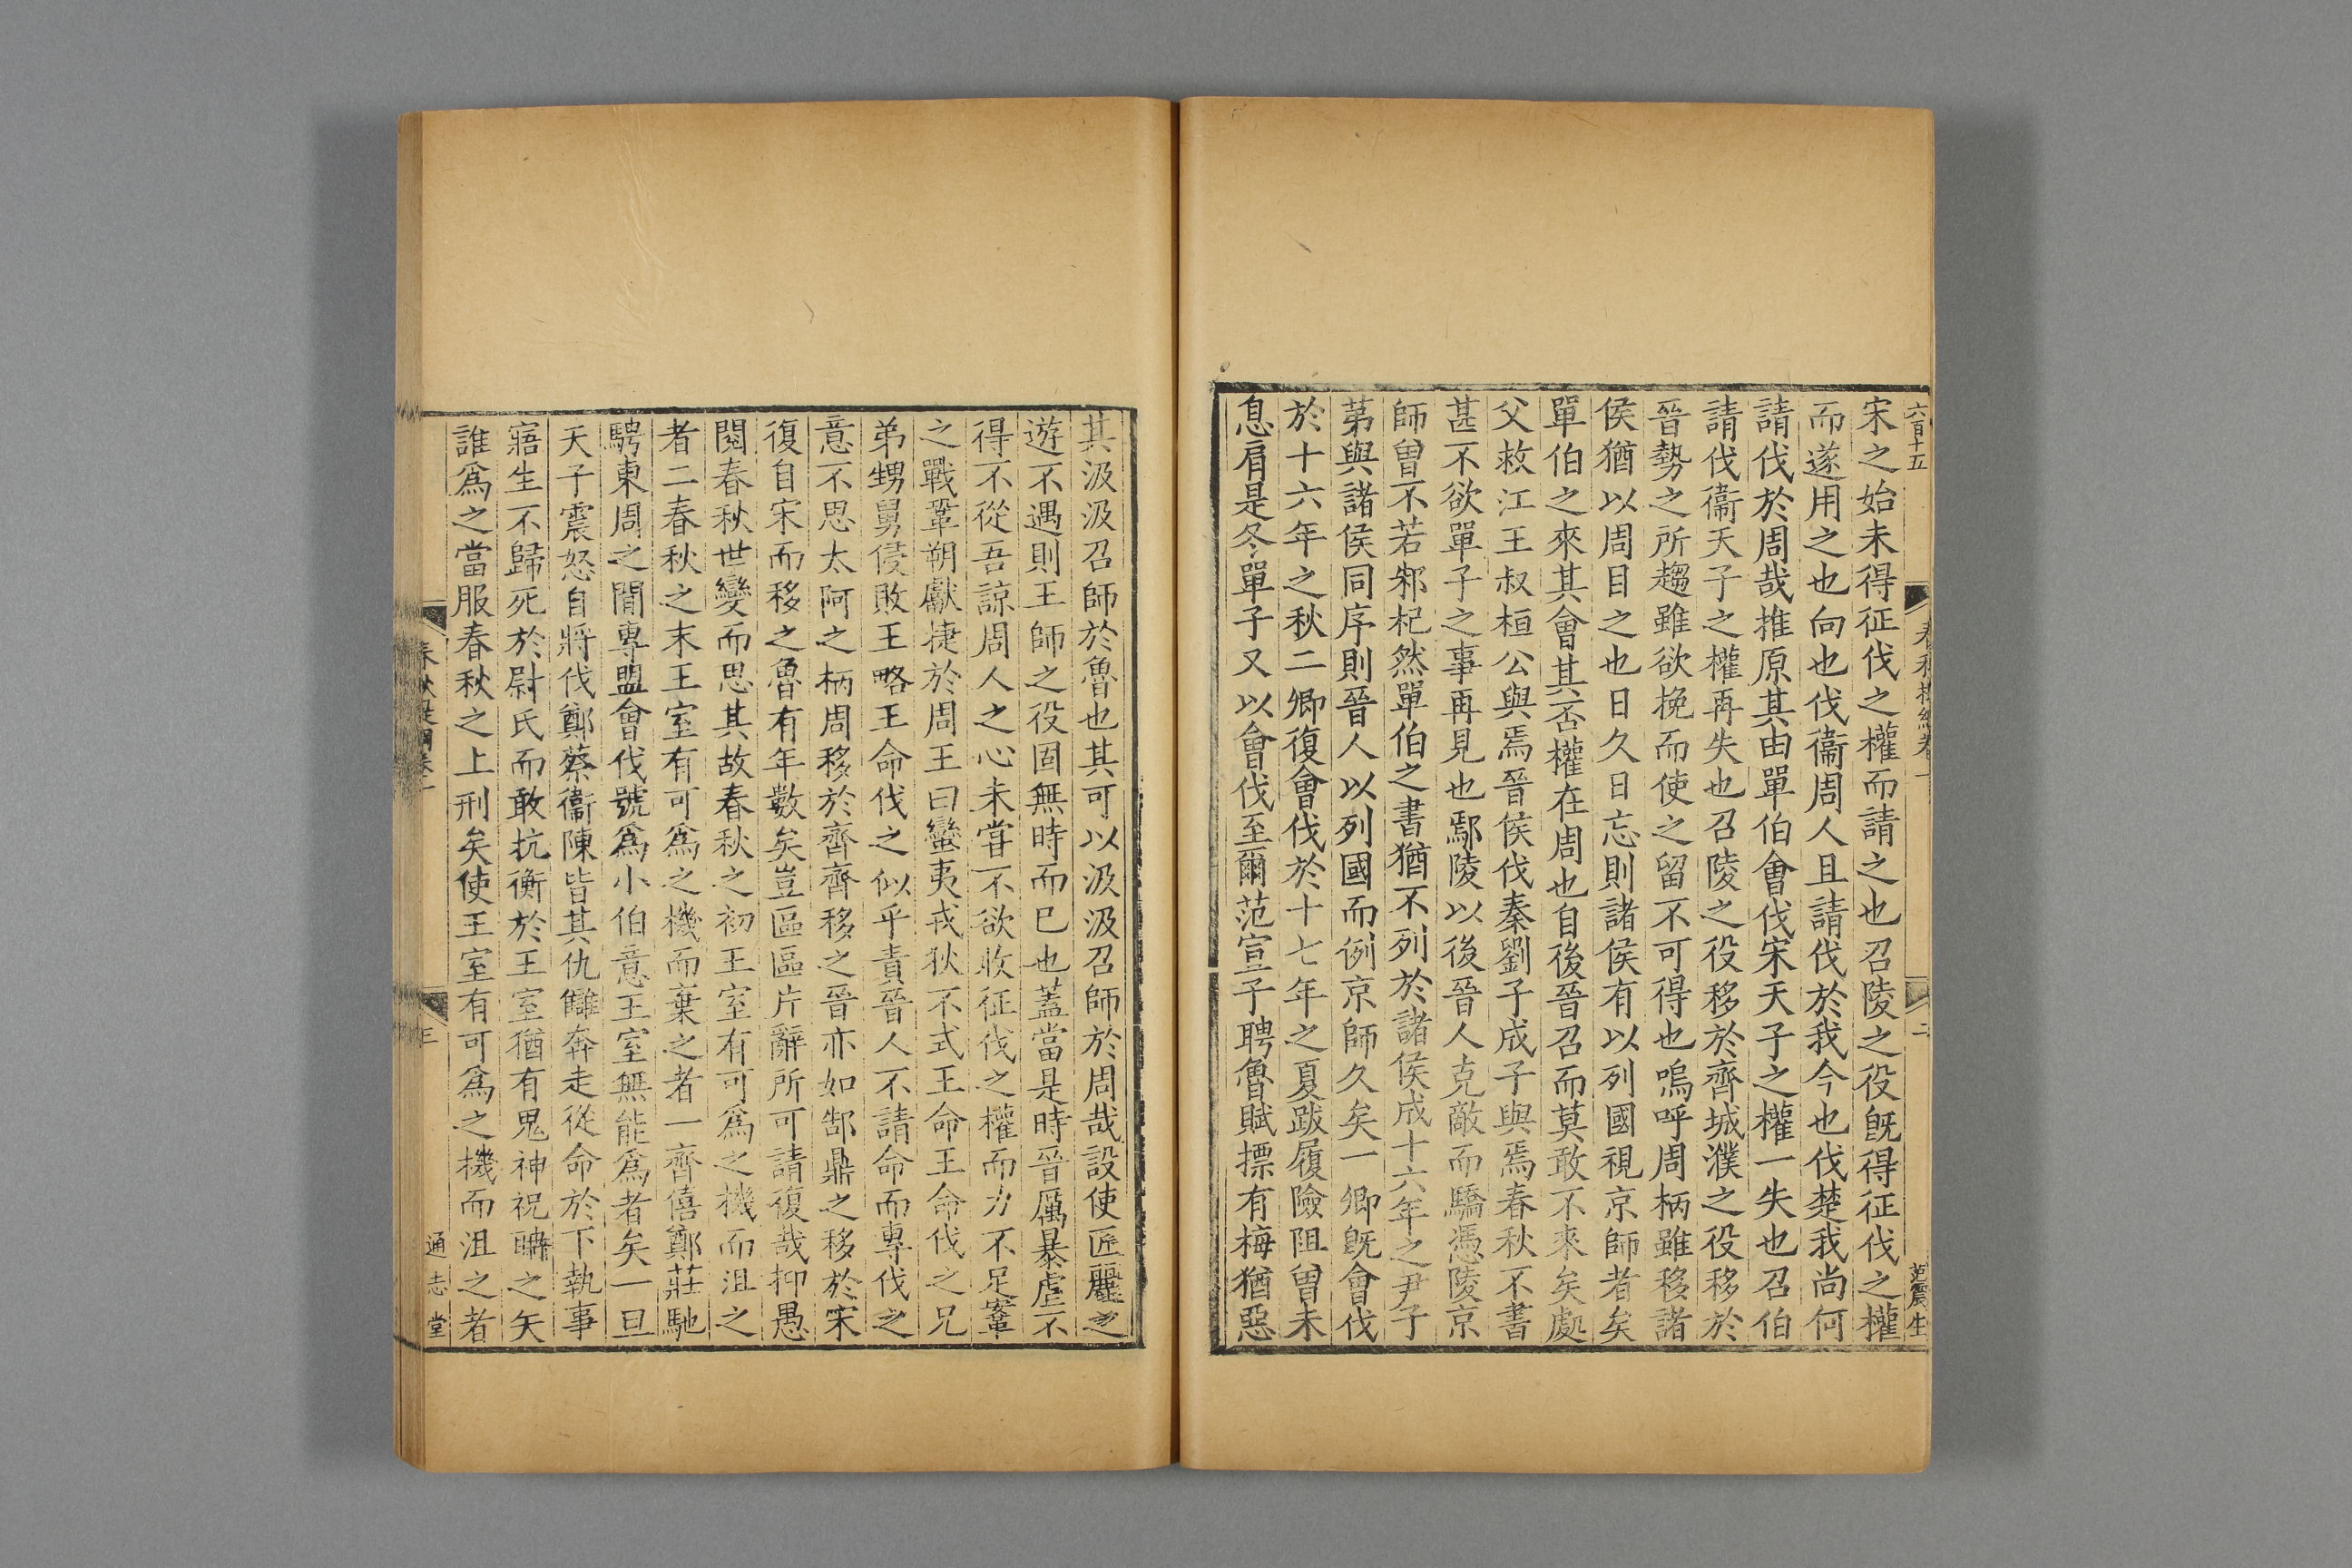 六百十五
宋之始未得征伐之權而請之也召陵之役旣得征伐之權
而遂用之也向也伐衞周人且請伐於我今也伐楚我尚何
請伐於周哉推原其由單伯會伐宋天子之權一失也召伯
請伐衞天子之權再失也召陵之役移於齊城濮之役移於
晉勢之所趨雖欲挽而使之留不可得也嗚呼周柄雖移諸
侯猶以周目之也日久日忘則諸侯有以列國視京師者矣
單伯之來其會其否權在周也自後晉召而莫敢不來矣處
父救江王叔桓公與焉晉侯伐秦劉子成子與焉春秋不書
甚不欲單子之事再見也鄢陵以後晉人克敵而驕憑陵京
師曽不若邾杞然單伯之書猶不列於諸侯成十六年之尹子
苐與諸侯同序則晉人以列國而例京師久矣一卿旣會伐
於十六年之秋二卿復會伐於十七年之夏跋履險阻曽未
息肩是冬單子又以會伐至爾范宣子聘魯賦摽有梅猶惡
春秋提綱卷一
二
范震生
其汲汲召師於魯也其可以汲汲召師於周哉設使匠麗之
遊不遇則王師之役固無時而已也蓋當是時晉厲暴虐不
得不從吾諒周人之心未嘗不欲收征伐之權而力不足鞌
之戰鞏朔獻捷於周王曰蠻夷戎狄不式王命王命伐之兄
弟甥舅侵敗王略王命伐之似乎責晉人不請命而專伐之
意不思太阿之柄周移於齊齊移之晉亦如郜鼎之移於宋
復自宋而移之魯有年數矣豈區區片辭所可請復哉抑愚
閱春秋世變而思其故春秋之初王室有可爲之機而沮之
者二春秋之末王室有可爲之機而棄之者一齊僖鄭莊馳
騁東周之間專盟會伐號爲小伯意王室無能爲者矣一旦
天子震怒自將伐鄭蔡衞陳皆其仇讎奔走從命於下執事
寤生不歸死於尉氏而敢抗衡於王室猶有鬼神祝聃之矢
誰爲之當服春秋之上刑矣使王室有可爲之機而沮之者
春秋提綱卷一
三
通志堂